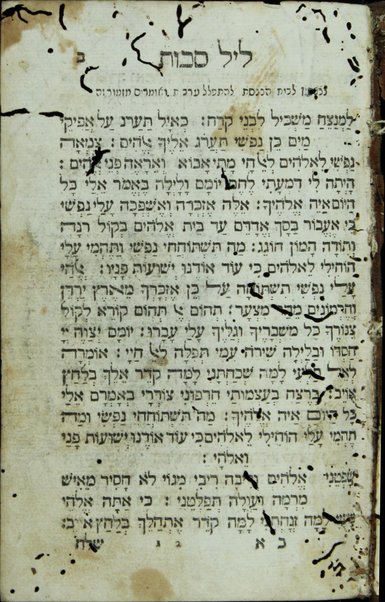 ליל סכות
ב
לבית הכנסת להתפלל ערבית ואומרים מזמור זה
לַמְנַצֵּחַ מַשְׂכִּיל לִבְנֵי קֹרַח: כְּאַיָּל תַּעֲרֹג עַל אֲפִיקֵי
מָיִם כֵּן נַפְשִׁי תַעֲרֹג אֵלֶיךָ אֱלֹהִים: צָמְאָה
נַפְשִׁי לֵאלֹהִים לְאֵל חָי מָתַי אָבוֹא וְאֵרָאֶה פְּנֵי אֱלֹהִים:
הָיְתָה לִּי דִמְעָתִי לֶחֶם יוֹמָם וָלָיְלָה בֶּאֱמֹר אֵלַי כָּל
הַיּוֹם אַיֵּה אֱלֹהֶיךָ: אֵלֶּה אֶזְכְּרָה וְאֶשְׁפְּכָה עָלַי נַפְשִׁי
כִּי אֶעֱבוֹר בַּסָּךְ אֶדַּדֵּם עַד בֵּית אֱלֹהִים בְּקוֹל רִנָּה
וְתוֹדָה הָמוֹן חוֹגֵג: מַה תִּשְׁתּוֹחֲחִי נַפְשִׁי וַתֶּהֱמִי עָלָי
הוֹחִילִי לֵאלֹהִים כִּי עוֹד אוֹדֶנּוּ יְשׁוּעוֹת פָּנָיו: אֱלֹהַי
עָלַי נַפְשִׁי תִשְׁתּוֹחָח עַל כֵּן אֶזְכָּרְךָ מֵאֶרֶץ יַרְדֵּן
וְחֶרְמוֹנִים מֵהַר מִצְעָר: תְּהוֹם אֶל תְּהוֹם קוֹרֵא לְקוֹל
צִנּוֹרֶיךָ כָּל מִשְׁבָּרֶיךָ וְגַלֶּיךָ עָלַי עָבָרוּ: יוֹמָם יְצַוֶּה יְיָ
חַסְדּוֹ וּבַלַּיְלָה שִׁירֹה עִמִּי תְּפִלָּה לְאֵל חַיָּי: אוֹמְרָה
לְאֵל סַלְעִי לָמָה שְׁכַחְתָּנִי לָמָּה קֹדֵר אֵלֵךְ בְּלַחַץ
אוֹיֵב: בְּרֶצַח בְּעַצְמוֹתַי חֵרְפוּנִי צוֹרְרָי בְּאָמְרָם אֵלַי
כָּל הַיּוֹם אַיֵּה אֱלֹהֶיךָ: מַה תִּשְׁתּוֹחֲחִי נַפְשִׁי וּמַה
תֶּהֱמִי עָלָי הוֹחִילִי לֵאלֹהִים כִּי עוֹד אוֹדֶנּוּ יְשׁוּעוֹת פָּנַי
וֵאלֹהָי:
שָׁפְטֵנִי אֱלֹהִים וְרִיבָה רִיבִי מִגּוֹי לֹא חָסִיד מֵאִישׁ
מִרְמָה וְעַוְלָה תְפַלְּטֵנִי: כִּי אַתָּה אֱלֹהֵי
לָמָה זְנַחְתָּנִי לָמָּה קֹדֵר אֶתְהַלֵּךְ בְּלַחַץ
שלח